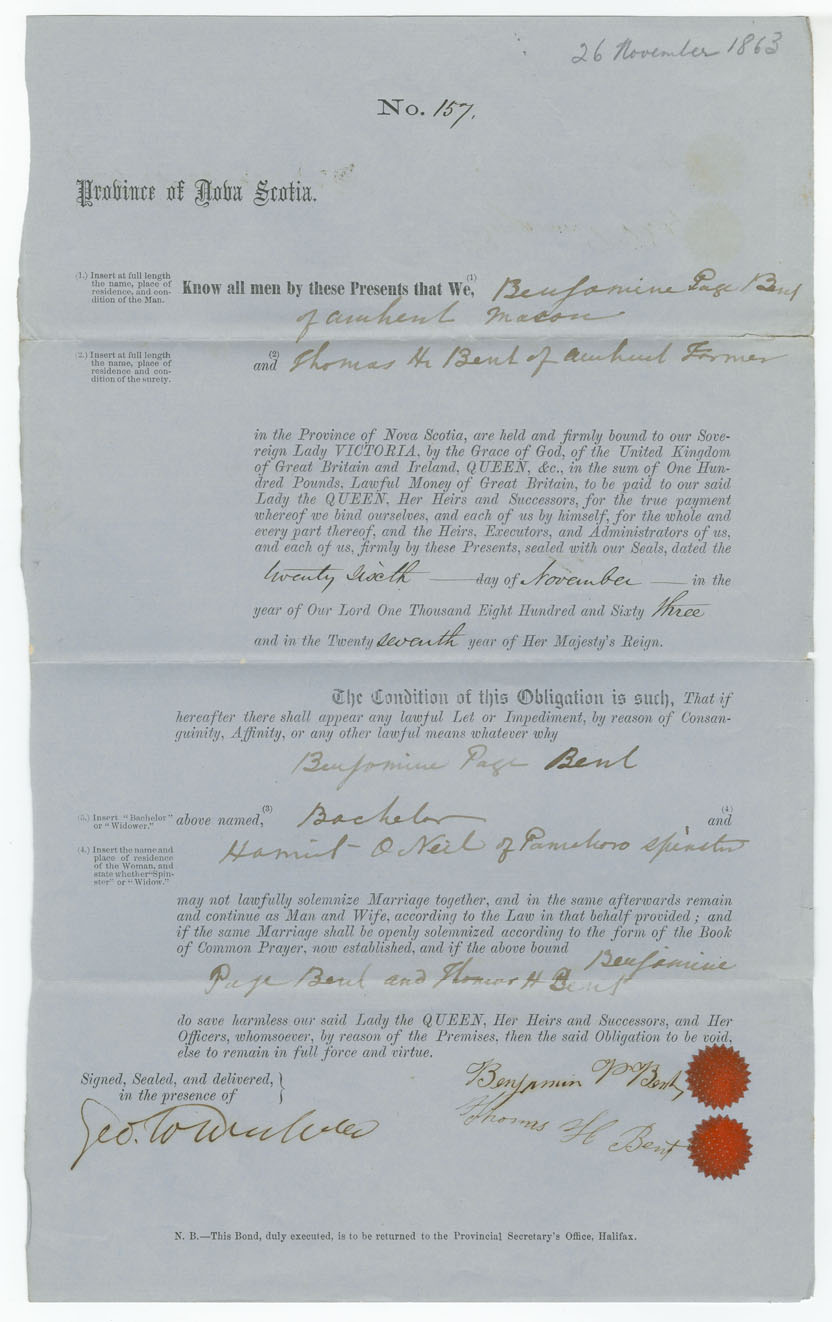 26 November 1863
No. 157.
Province of Nova Scotia.
(1.) Insert at full length
the name, place of
residence, and con-
dition of the Man.
Know all men by these Presents that We, (1) Benjamine Page Bent
of Amherst Mason
(2.) Insert at full length
the name, place of
residence and con-
dition of the surety.
and (2) Thomas H Bent of Amherst Farmer
in the Province of Nova Scotia, are held and firmly bound to our Sove-
reign Lady VICTORIA, by the Grace of God, of the United Kingdom
of Great Britain and Ireland, QUEEN, &c., in the sum of One Hun-
dred Pounds, Lawful Money of Great Britain, to be paid to our said
Lady the QUEEN, Her Heirs and Successors, for the true payment
whereof we bind ourselves, and each of us by himself, for the whole and
every part thereof, and the Heirs, Executors, and Administrators of us,
and each of us, firmly by these Presents, sealed with our Seals, dated the
twenty sixth day of November in the
year of Our Lord One Thousand Eight Hundred and Sixty three
and in the Twenty seventh year of Her Majesty's Reign.
The Condition of this Obligation is such, That if
hereafter there shall appear any lawful Let or Impediment, by reason of Consan-
guinity, Affinity, or any other lawful means whatever why
Benjamine Page Bent
(3.) Insert "Bachelor"
or "Widower."
above named, (3) Bachelor (4) and
(4.) Insert the name and
place of residence
of the Woman, and
state whether "Spin-
ster" or "Widow."
O Neil of Parrsboro Spinster
may not lawfully solemnize Marriage together, and in the same afterwards remain
and continue as Man and Wife, according to the Law in that behalf provided; and
if the same Marriage shall be openly solemnized according to the form of the Book
of Common Prayer, now established, and if the above bound Benjamine
Page Bent and Thomas H Bent
do save harmless our said Lady the QUEEN, Her Heirs and Successors, and Her
Officers, whomsoever, by reason of the Premises, then the said Obligation to be void,
else to remain in full force and virtue.
Signed, Sealed, and delivered,
in the presence of
Benjamin P Bent
Thomas H Bent
Geo.
N. B.—This Bond, duly executed, is to be returned to the Provincial Secretary's Office, Halifax.